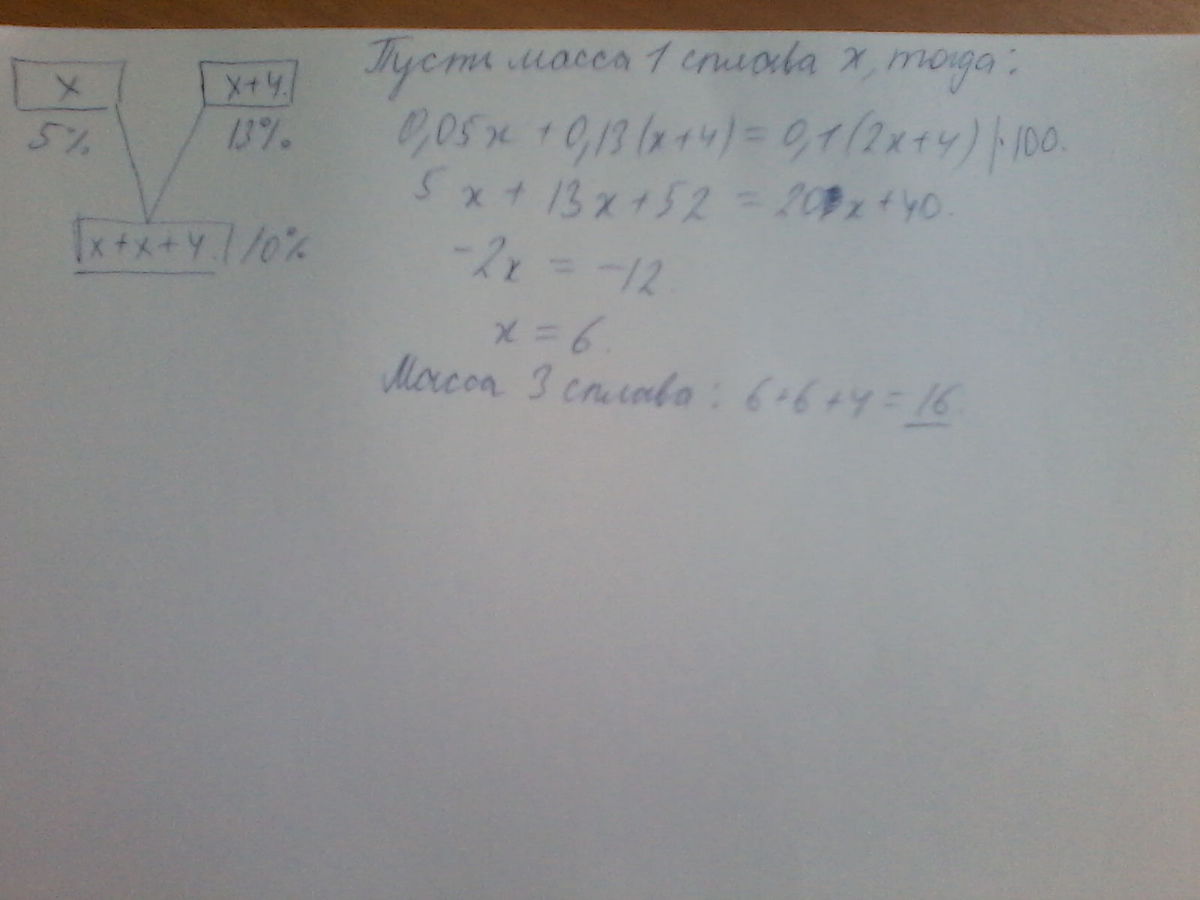 x
x+4.
5%
13%
x+x+4.
10%
Пусть масса 1 сплава x, тогда:
0,05x + 0,13(x+4) = 0,1(2x+4) |·100.
5x + 13x + 52 = 20x + 40.
-2x = -12.
x = 6.
Масса 3 сплава: 6+6+4 = 16.